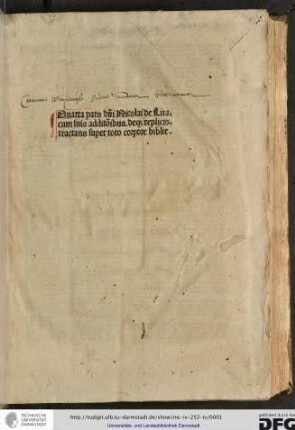 Quarta pars dñi Nicolai de Lira.
cum suis additõibus. deqз replicis.
tractans super toto corpore biblie.
TECHNISCHE
UNIVERSITÄT
DARMSTADT
http://tudigit.ulb.tu-darmstadt.de/show/inc-iv-252-iv/0001
Universitäts- und Landesbibliothek Darmstadt
gefördert durch die
DFG